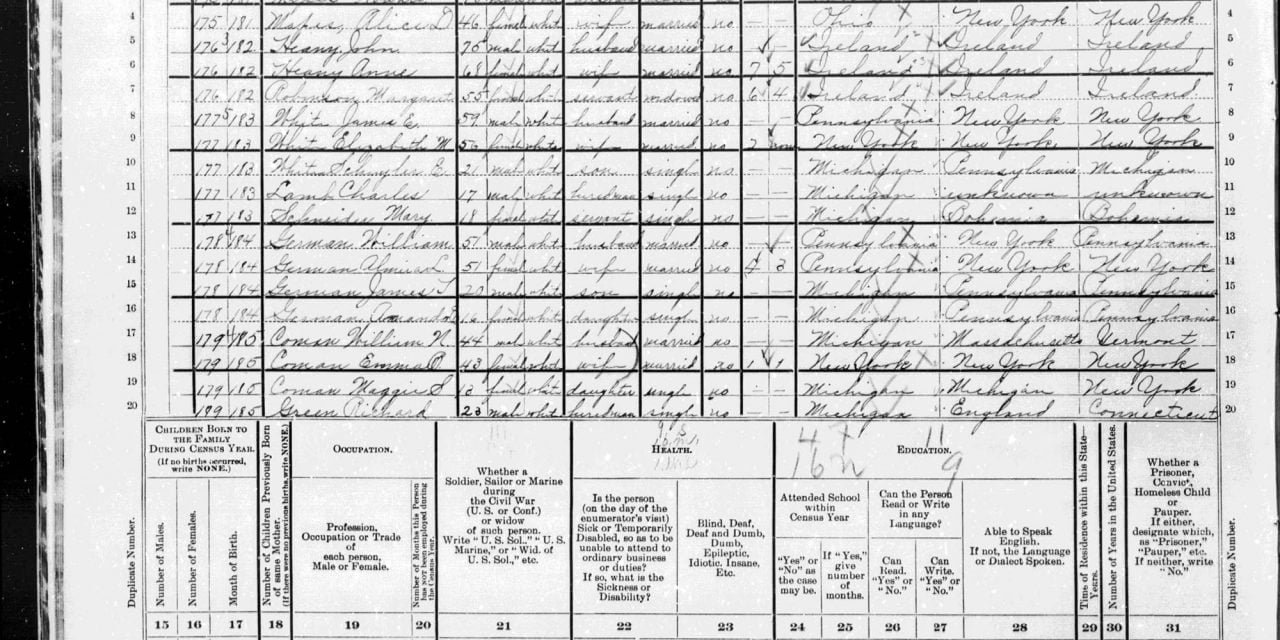 4 175 181 Mapes, Alice D 46 femal whit wife married no — — Ohio New York New York 4
5 176 182 Heany, John 70 male whit husband married no — Ireland Ireland Ireland 5
6 176 182 Heany Anne 68 femal whit wife married no 7 5 Ireland Ireland Ireland 6
7 176 182 Robinson Margaret 55 femal whit servant widowed no 6 4 Ireland Ireland Ireland 7
8 177 183 White James E. 59 male white husband married no — — Pennsylvania New York New York 8
9 177 183 White Elizabeth M 56 femal white wife married no 2 none New York New York New York 9
10 177 183 White Schuyler E. 21 male whit son singl no — — Michigan Pennsylvania Michigan 10
11 177 183 Lamb Charles 17 male whit hiredman singl no — — Michigan unknown unknown 11
12 177 183 Schneider Mary 18 femal whit servant singl no — — Michigan Bohemia Bohemia 12
13 178 184 German William 51 male whit husband married no — Pennsylvania New York Pennsylvania 13
14 178 184 German L 51 femal whit wife married no 4 3 Pennsylvania New York New York 14
15 178 184 German James L 20 male white son singl no — — Michigan Pennsylvania Pennsylvania 15
16 178 184 German Amanda 16 femal white daughter singl no — — Michigan Pennsylvania Pennsylvania 16
17 179 185 Coman William N. 44 mal whit husband married no — — Michigan Massachusetts Vermont 17
18 179 185 Coman Emma P 43 femal whit wife married no 1 1 New York New York New York 18
19 179 185 Coman Maggie S 13 femal whit daughter singl no — — Michigan Michigan New York 19
20 189 185 Green Richard 23 male whit hiredman singl no — — Michigan England Connecticut 20
Children Born to the Family During Census Year. (If no births occurred, write NONE.)
Duplicate Number.
Number of Males.
Number of Females.
Month of Birth.
Number of Children Previously Born of same Mother. (If there were no previous births, write NONE.)
Occupation.
Profession, Occupation or Trade of each person, Male or Female.
Number of Months this Person has been employed during the Census Year.
Whether a Soldier, Sailor or Marine during the Civil War (U. S. or Conf.) or widow of such person. Write "U. S. Sol.," "U. S. Marine," or "Wid. of U. S. Sol.," etc.
Health.
Is the person (on the day of the enumerator's visit) Sick or Temporarily Disabled, so as to be unable to attend to ordinary business or duties? If so, what is the Sickness or Disability?
Blind, Deaf, Deaf and Dumb, Dumb, Epileptic, Idiotic, Insane, Etc.
4 11
16 m 9
Education.
Attended School within Census Year
"Yes" or "No" as the case may be.
If "Yes," give number of months.
Can the Person Read or Write in any Language?
Can Read. "Yes" or "No."
Can Write. "Yes" or "No."
Able to Speak English. If not, the Language or Dialect Spoken.
Time of Residence within this State—Years.
Number of Years in the United States.
Whether a Prisoner, Convict, Homeless Child or Pauper. If either, designate which, as "Prisoner," "Pauper," etc. If neither, write "No."
Duplicate Number.
15 16 17 18 19 20 21 22 23 24 25 26 27 28 29 30 31